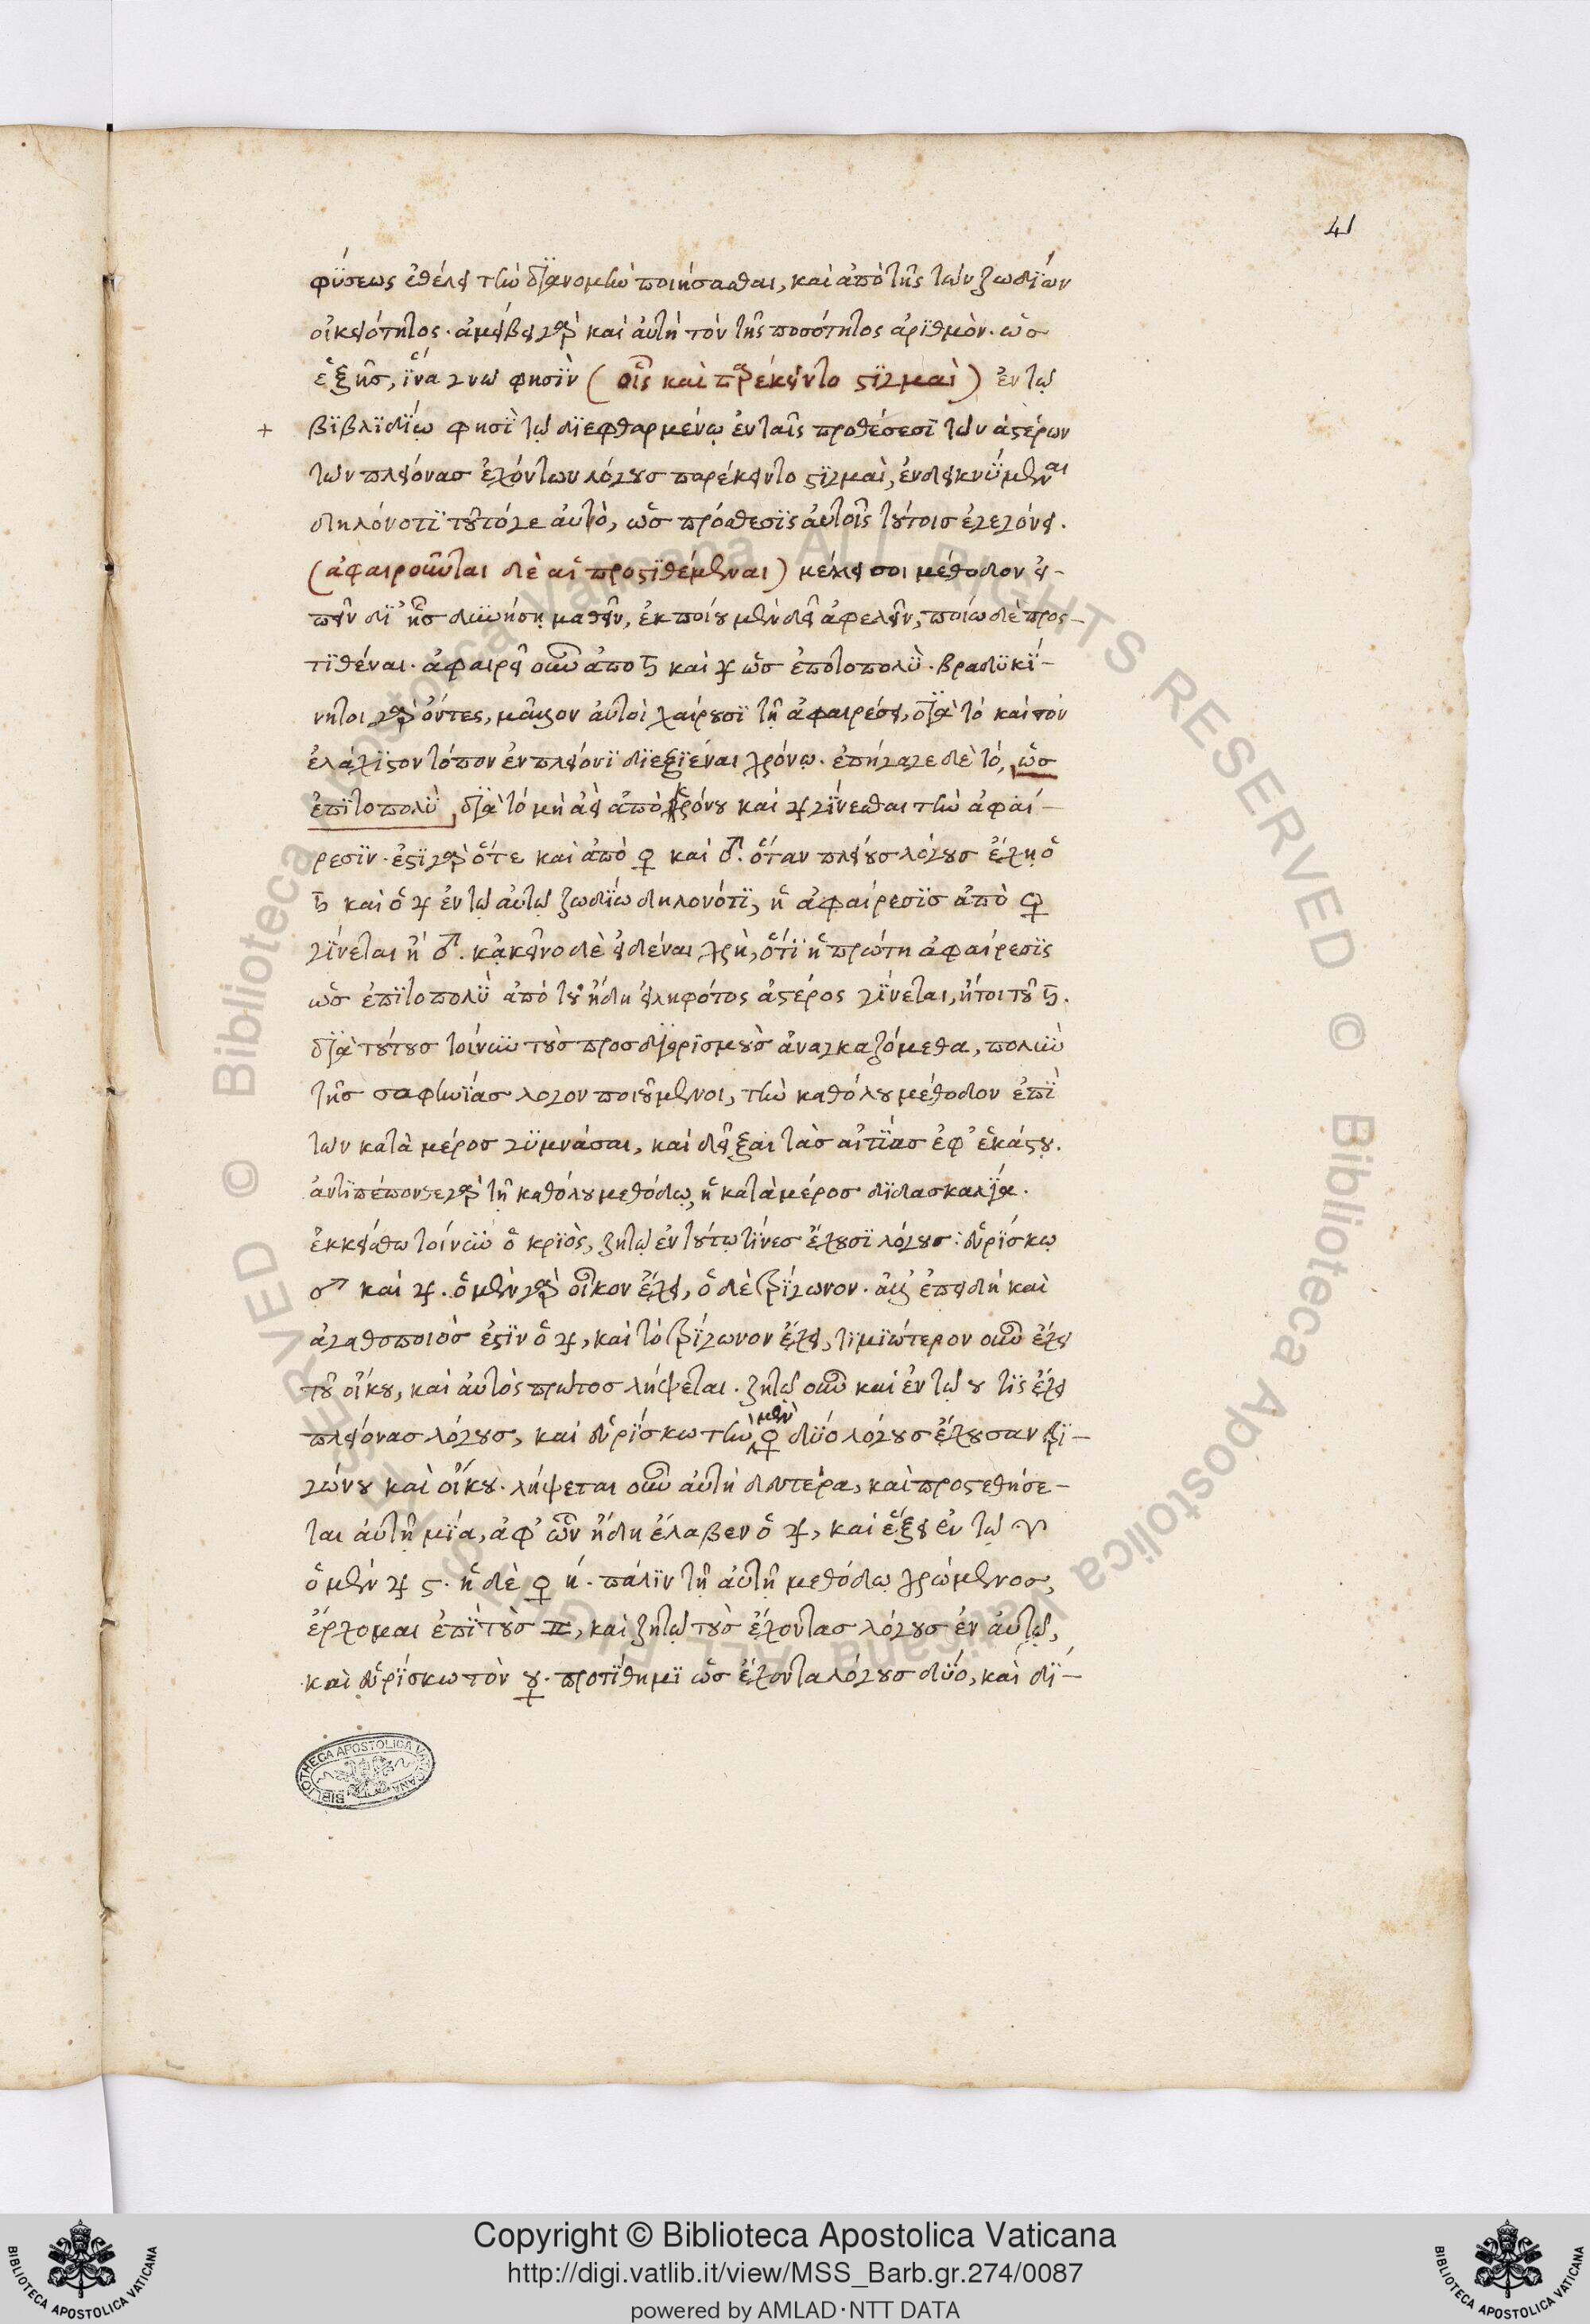 41
φύσεως ἐθέλει τὴν διανομὴν ποιήσασθαι, καὶ ἀπὸ τῆς τῶν ζωδίων
οἰκειότητος. ἀμείβει γὰρ καὶ αὐτὴ τὸν τῆς ποσότητος ἀριθμὸν. ὡς
ἑξῆς, ἵνα γνῷ φησὶν (οἷς καὶ παρέκειντο στιγμαὶ) ἐν τῷ
+ βιβλιδίῳ φησὶ τῷ διεφθαρμένῳ ἐν ταῖς προθέσεσι τῶν ἀστέρων
τῶν πλείονας ἐχόντων λόγους παρέκειντο στιγμαὶ, ἐνδεικνύμεναι
δηλονότι τοῦτό γε αὐτὸ, ὡς πρόσθεσις αὐτοῖς τούτοις ἐγεγόνει.
(ἀφαιροῦνται δὲ αἱ προστιθέμεναι) μέλει σοι μέθοδον εἰ-
πεῖν δι' ἧς δυνήσῃ μαθεῖν, ἐκ ποίου μὲν δεῖ ἀφελεῖν, ποίῳ δὲ προσ-
τιθέναι. ἀφαιρεῖ οὖν ἀπὸ ♄ καὶ ♃ ὡς ἐπὶ τὸ πολύ. βραδυκί-
νητοι γὰρ ὄντες, μᾶλλον αὐτοὶ χαίρουσι τῇ ἀφαιρέσει, διὰ τὸ καὶ τὸν
ἐλάχιστον τόπον ἐν πλείονι διεξιέναι χρόνῳ. ἐπήγαγε δὲ τό, ὡς
ἐπὶ τὸ πολὺ, διὰ τὸ μὴ ἀεὶ ἀπὸ κρόνου καὶ ♃ γίνεσθαι τὴν ἀφαί-
ρεσιν. ἔστι γὰρ ὅτε καὶ ἀπὸ ♀ καὶ ♂. ὅταν πλείους λόγους ἔχῃ ὁ
♄ καὶ ὁ ♃ ἐν τῷ αὐτῷ ζωδίῳ δηλονότι, ἡ ἀφαίρεσις ἀπὸ ♀
γίνεται ἢ ♂. κἀκεῖνο δὲ εἰδέναι χρὴ, ὅτι ἡ πρώτη ἀφαίρεσις
ὡς ἐπὶ τὸ πολὺ ἀπὸ τοῦ ἤδη εἰληφότος ἀστέρος γίνεται, ἤτοι τοῦ ♄.
διὰ τούτους τοίνυν τοὺς προσδιορισμοὺς ἀναγκαζόμεθα, πολὺν
τῆς σαφηνίας λόγον ποιούμενοι, τὴν καθόλου μέθοδον ἐπὶ
τῶν κατὰ μέρος γυμνάσαι, καὶ δεῖξαι τὰς αἰτίας ἐφ' ἑκάστου.
ἀντιπέπονθε γὰρ τῇ καθόλου μεθόδῳ, ἡ κατὰ μέρος διδασκαλία.
ἐκκείσθω τοίνυν ὁ κριὸς, ζητῶ ἐν τούτῳ τίνες ἔχουσι λόγους: εὑρίσκω
♂ καὶ ♃. ὁ μὲν γὰρ οἶκον ἔχει, ὁ δὲ τρίγωνον. ἀλλ' ἐπειδὴ καὶ
ἀγαθοποιὸς ἐστὶν ὁ ♃, καὶ τὸ τρίγωνον ἔχει, τιμιώτερον οὖν ἔχει
τοῦ οἴκου, καὶ αὐτὸς πρῶτος λήψεται. ζητῶ οὖν καὶ ἐν τῷ ♉ τίς ἔχει
πλείονας λόγους, καὶ εὑρίσκω τὴν μὲν ♀ δύο λόγους ἔχουσαν τρι-
γώνου καὶ οἴκου. λήψεται οὖν αὐτὴ δευτέρα, καὶ προστεθήσε-
ται αὐτῇ μία, ἀφ' ὧν ἤδη ἔλαβεν ὁ ♃, καὶ ἕξει ἐν τῷ ♈
ὁ μὲν ♃ ϛ. ἡ δὲ ♀ η. πάλιν τῇ αὐτῇ μεθόδῳ χρώμενος,
ἔρχομαι ἐπὶ τοὺς ♊, καὶ ζητῶ τοὺς ἔχοντας λόγους ἐν αὐτῷ,
καὶ εὑρίσκω τὸν ☿. προτίθημι ὡς ἔχοντα λόγους δύο, καὶ δι-
BIBLIOTHECA APOSTOLICA VATICANA
© Biblioteca Apostolica Vaticana ALL RIGHTS RESERVED © Biblioteca Apostolica Vaticana ALL RIGHTS RESERVED
BIBLIOTECA APOSTOLICA VATICANA
Copyright © Biblioteca Apostolica Vaticana
http://digi.vatlib.it/view/MSS_Barb.gr.274/0087
powered by AMLAD·NTT DATA
BIBLIOTECA APOSTOLICA VATICANA